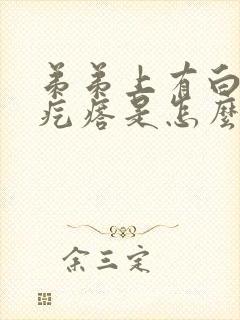 弟弟上有白
疙瘩是怎麼
余三定